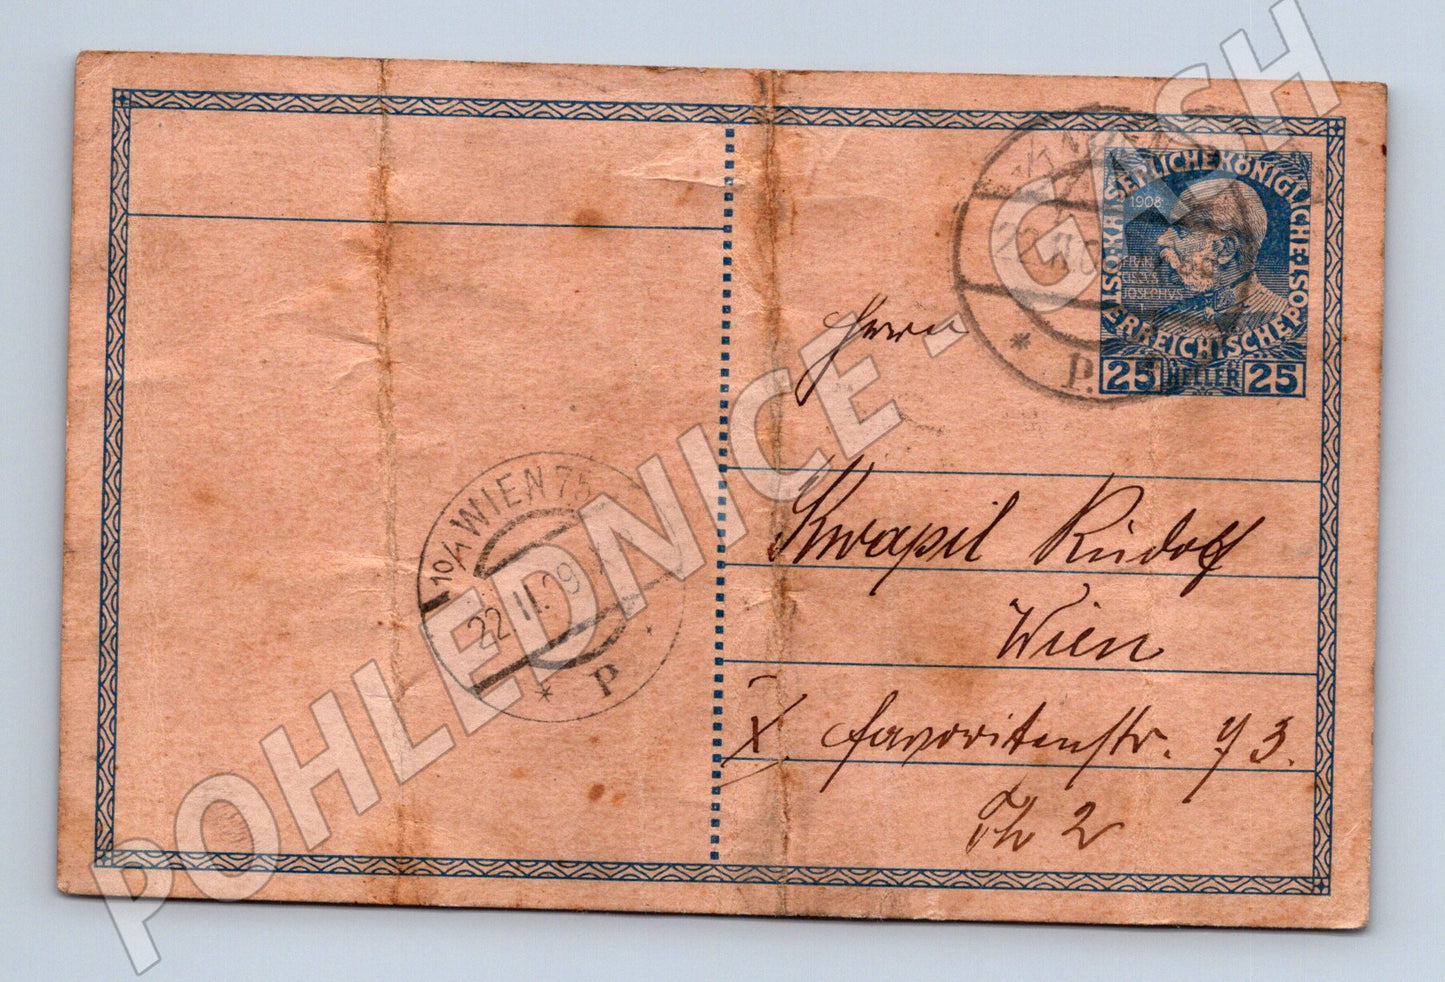 KAISERLICHE KÖNIGLICHE ÖSTERREICHISCHE POST
1908
JOSEPHVS
25 HELLER 25
* P.
Herrn
Kwapil Rudolf
Wien
X. Favoritenstr. 73.
Th 2
10/1 WIEN 75
22 II. 09
* P
POHLEDNICE - CASH